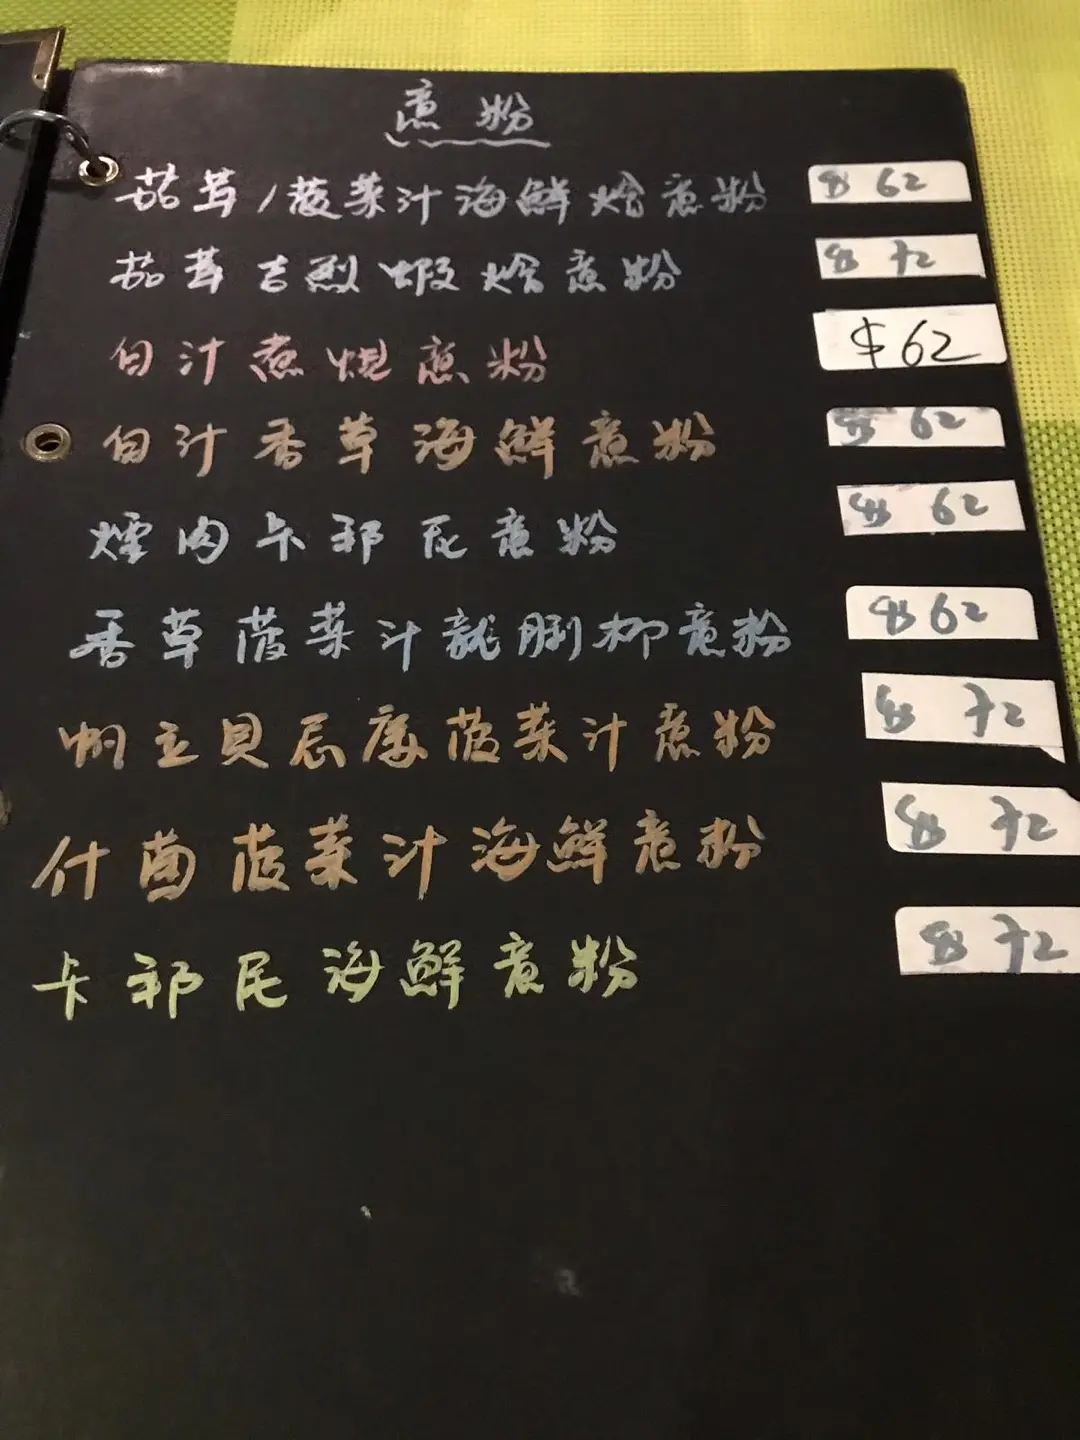 意粉
茄茸/菠菜汁海鮮燴意粉 $62
茄茸吉列蝦燴意粉 $72
白汁煮焗意粉 $62
白汁香草海鮮意粉 $62
煙肉卡邦尼意粉 $62
香草菠菜汁龍脷柳意粉 $62
帆立貝忌廉菠菜汁意粉 $72
什菌菠菜汁海鮮意粉 $72
卡邦尼海鮮意粉 $72